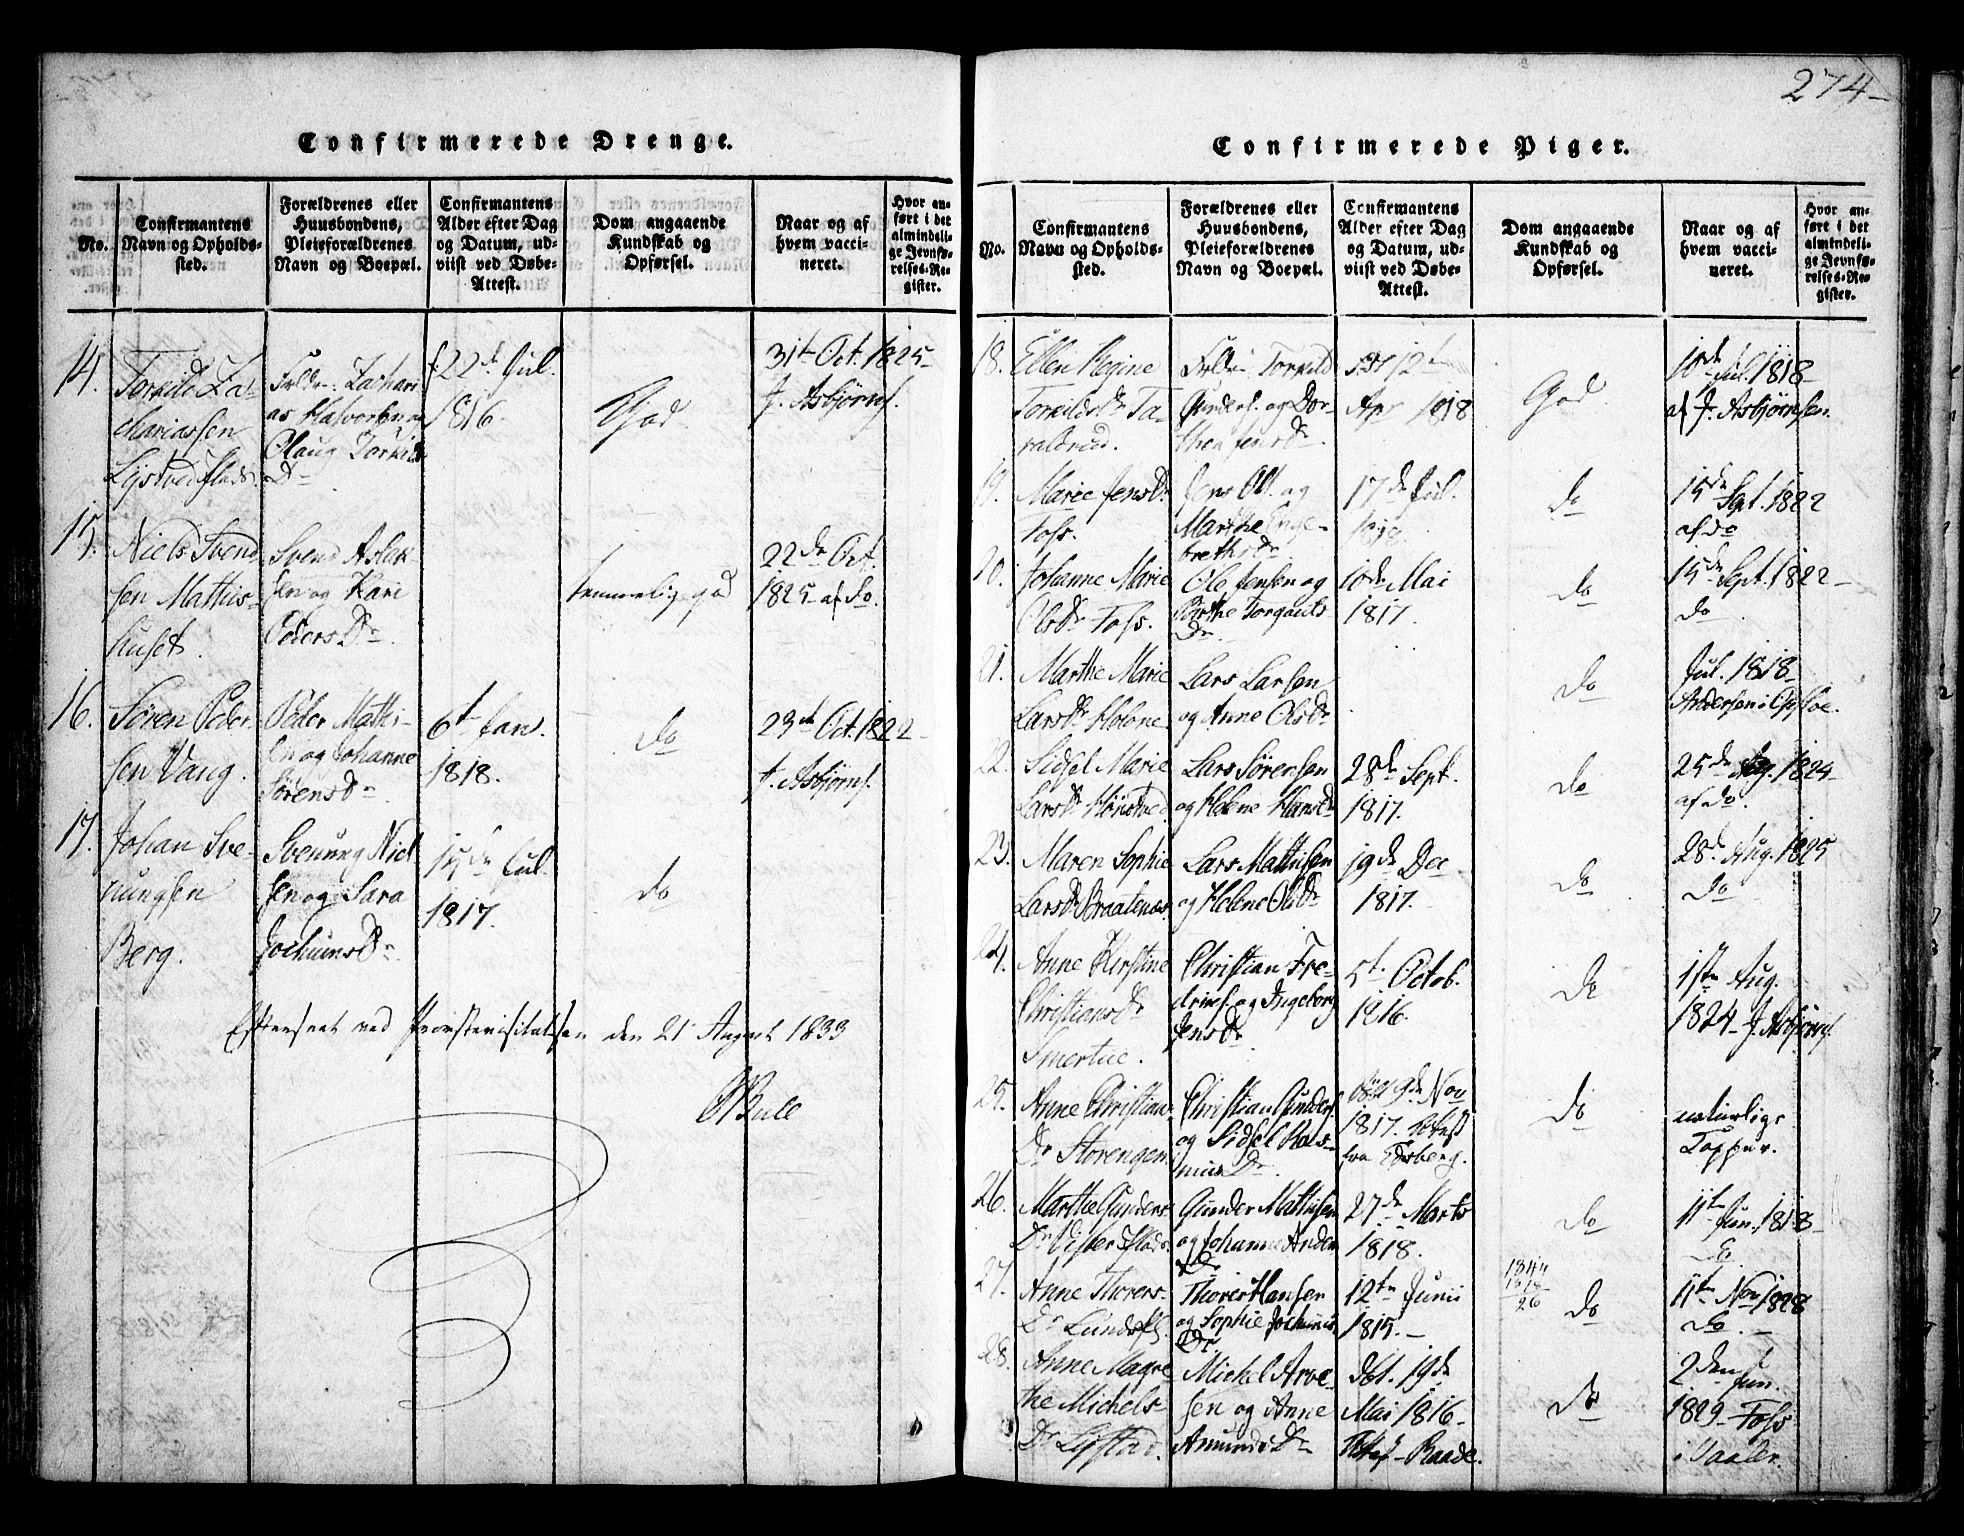 274-
Confirmerede Drenge.
No.
Confirmantens
Navn og Opholds-
sted.
Forældrenes eller
Huusbondens,
Pleieforældrenes
Navn og Boepæl.
Confirmantens
Alder efter Dag
og Datum, ud-
viist ved Døbe-
Attest.
Dom angaaende
Kundskab og
Opførsel.
Naar og af
hvem vacci-
neret.
Hvor an-
ført i det
almindeli-
ge Jevnfø-
relses-Re-
gister.
14.
Torkild Za-
chariassen
Zachari
as Halvorsen
Olaug Torkilds
Dr
22d Jul.
1816.
God
31t Oct. 1825-
J. Asbjørns.
15.
Niels Svend
sen Mathis-
huset.
Svend Aslak
sen og Kari
PedersDr
temmelig god
22de Oct.
1825 af do.
16.
Søren Peder
sen Vang.
Peder Mathi-
sen og Johanne
SørensDr
6t Jan.
1818.
do
23d Oct. 1822-
J. Asbjørns.
17.
Johan Sve-
nungsen
Berg.
Svenung Niel
sen og Sara
JochumsDr
15de Jul.
1817.
do
Efterseet ved Provstevisitatsen den 21 August 1833
Confirmerede Piger.
No.
Confirmantens
Navn og Opholds-
sted.
Forældrenes eller
Huusbondens,
Pleieforældrenes
Navn og Boepæl.
Confirmantens
Alder efter Dag
og Datum, ud-
viist ved Døbe-
Attest.
Dom angaaende
Kundskab og
Opførsel.
Naar og af
hvem vacci-
neret.
Hvor an-
ført i det
almindeli-
ge Jevnfø-
relses-Re-
gister.
18.
Ellen Regine
TorkildsDr Ta-
raldrud.
Torkild
Gunders. og Dor-
thea JensDr
Apr 1818
God
10de Jul. 1818-
af J. Asbjørnsen.
19.
Marie JensDr
Foss.
Jens Ols. og
Marthe Inge-
brethsDr
17de Jul.
do
15de Sept. 1822
af do
20.
Johanne Marie
OlsDr Foss.
Ole Jensen og
Berthe Torgauts
Dr
10de Mai
1817.
do
15de Sept. 1822-
do
21.
Marthe Marie
LarsDr
Lars Larsen
og Anne OlsDr
do
Jul. 1818-
Andersen i
22.
Sidsel Marie
LarsDr
Lars Sørensen
og Helene HansDr
28de Sept.
1817.
do
25de Aug. 1824-
af do.
23.
Maren Sophie
LarsDr Braatenes.
Lars Mathisen
og Helene OlsDr
19de Dec
1817.
do
28d Aug. 1825
do
24.
Anne Kirstine
ChristiansDr
Smertue.
Christian Fre-
drics. og Ingeborg
JensDr
5t Octob.
1816.
do
1ste Aug.
1824- J. Asbjørns.
25.
Anne Christians
Dr Storengen
Christian Gunders.
og Sidsel Ras-
musDr
9de Nov
1817. Attest
fra Edsberg.
do
naturlige
Kopper.
26.
Marthe Gunders
Dr
Gunder Mathisen
og Johanne Anders
Dr
27de Marts
1818.
do
11te Jun. 1818-
27.
Anne Thorers-
Dr
Thorer Hansen
og Sophie Jochums
Dr.
12te Junii
1815.-
1844
1818
26
do
11te Nov 1828
do.-
28.
Anne Magre
the Michels-
Dr Lystad.
Michel Arve-
sen og Anne
AmundsDr
døbt. 19de
Mai 1816-
Raade.
do
2den Jun.
1829- Foss
i Vaaler.